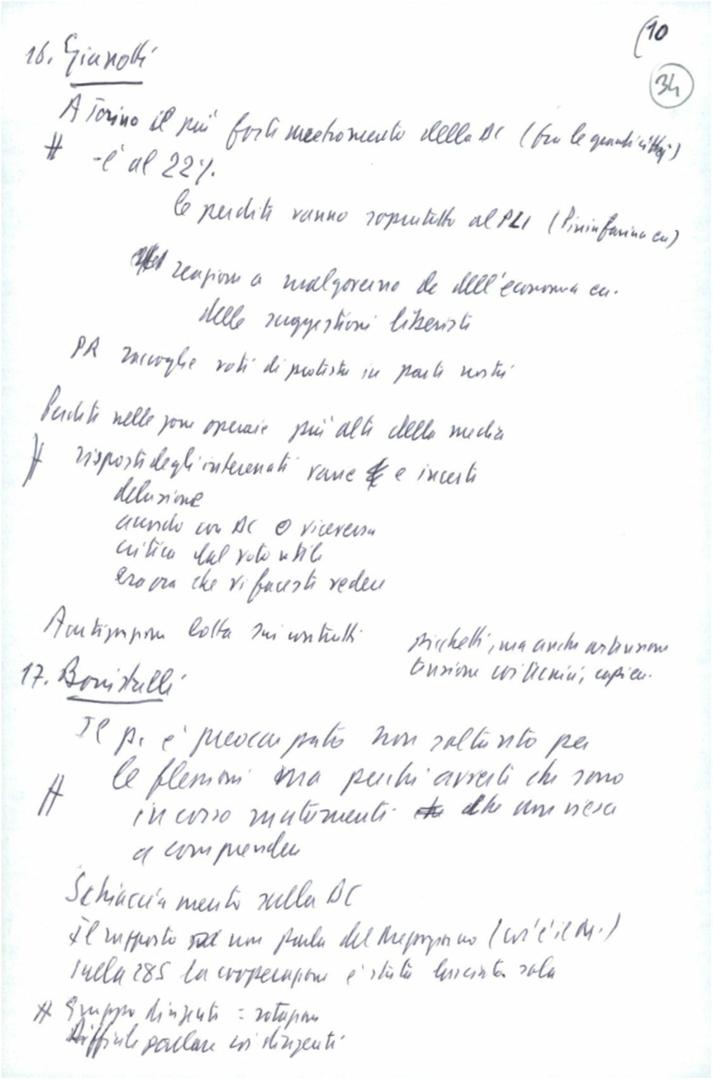 (10
34
16. Gianotti
A Torino il più forte arretramento della DC (fra le grandi città)
# - è al 22%
le perdite vanno soprattutto al PLI (Pininfarina ecc)
reazione a malgoverno dc dell'economia ecc.
delle suggestioni liberiste
PR raccoglie voti di protesta in parte nostri
Perdite nelle zone operaie più alte della media
# risposte degli interessati varie e incerte
delusione
accordo con DC o viceversa
critica dal voto utile
era ora che vi faceste vedere
lotta sui contratti
picchetti, ma anche
tensione coi tecnici, capi ecc.
17. Bonistalli
Il p. è preoccupato non soltanto per
# le flessioni ma perché avverte che sono
in corso mutamenti che non riesce
a comprendere
Schiacciamento sulla DC
Il rapporto non parla del Mezzogiorno (cos'è il M.)
Sulla 285 la cooperazione è stata lasciata sola
# Gruppo dirigente = rotazione
Difficile parlare coi dirigenti